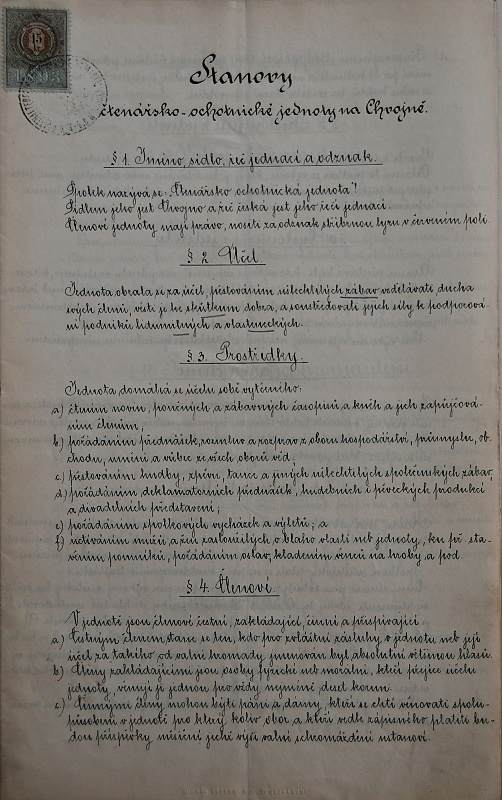 15
Stanovy
čtenářsko-ochotnické jednoty na Chvojně.
§ 1. Jméno, sídlo, řeč jednací a odznak.
Spolek nazývá se: „Čtenářsko ochotnická jednota“!
Sídlem jeho jest Chvojno a řeč česká jest jeho řečí jednací.
Členové jednoty mají právo, nositi za odznak stříbrnou lyru v červeném poli
§ 2 Účel
Jednota obrala si za účel, pěstováním ušlechtilých zábav vzdělávati ducha
svých členů, vésti je ke skutkům dobra, a soustřeďovati jejich síly k podporová-
ní podniků lidumilných a vlasteneckých.
§ 3. Prostředky.
Jednota domáhá se účelu sobě vytčeného:
a) čtením novin, poučných a zábavných časopisů a knih a jich zapůjčová-
ním členům;
b) pořádáním přednášek, rozmluv a rozprav z oboru hospodářství, průmyslu, ob-
chodu, umění a vůbec ze všech oborů věd;
c) pěstováním hudby, zpěvu, tance a jiných ušlechtilých společenských zábav;
d) pořádáním deklamatorních přednášek, hudebních i pěveckých produkcí
a divadelních představení;
e) pořádáním spolkových vycházek a výletů; a
f) uctíváním mužů a žen zasloužilých o blaho vlasti neb jednoty, ku př. sta-
věním pomníků, pořádáním oslav, kladením věnců na hroby a pod.
§ 4. Členové.
V jednotě jsou členové čestní, zakládající, činní a přispívající
a) Čestným členem stane se ten, kdo pro zvláštní zásluhy o jednotu neb její
účel za takého od valné hromady jmenován byl absolutní většinou hlasů.
b) Členy zakládajícími jsou osoby fysické neb morální, kteří přejíce účelu
jednoty, věnují jí jednou pro vždy nejméně deset korun.
c) Činnými členy mohou býti páni a dámy, kteří se chtí věnovati spolu-
působení v jednotě pro který koliv obor a kteří vedle zápisného platiti bu-
dou příspěvky měsíční jichž výši valné schromáždění ustanoví.